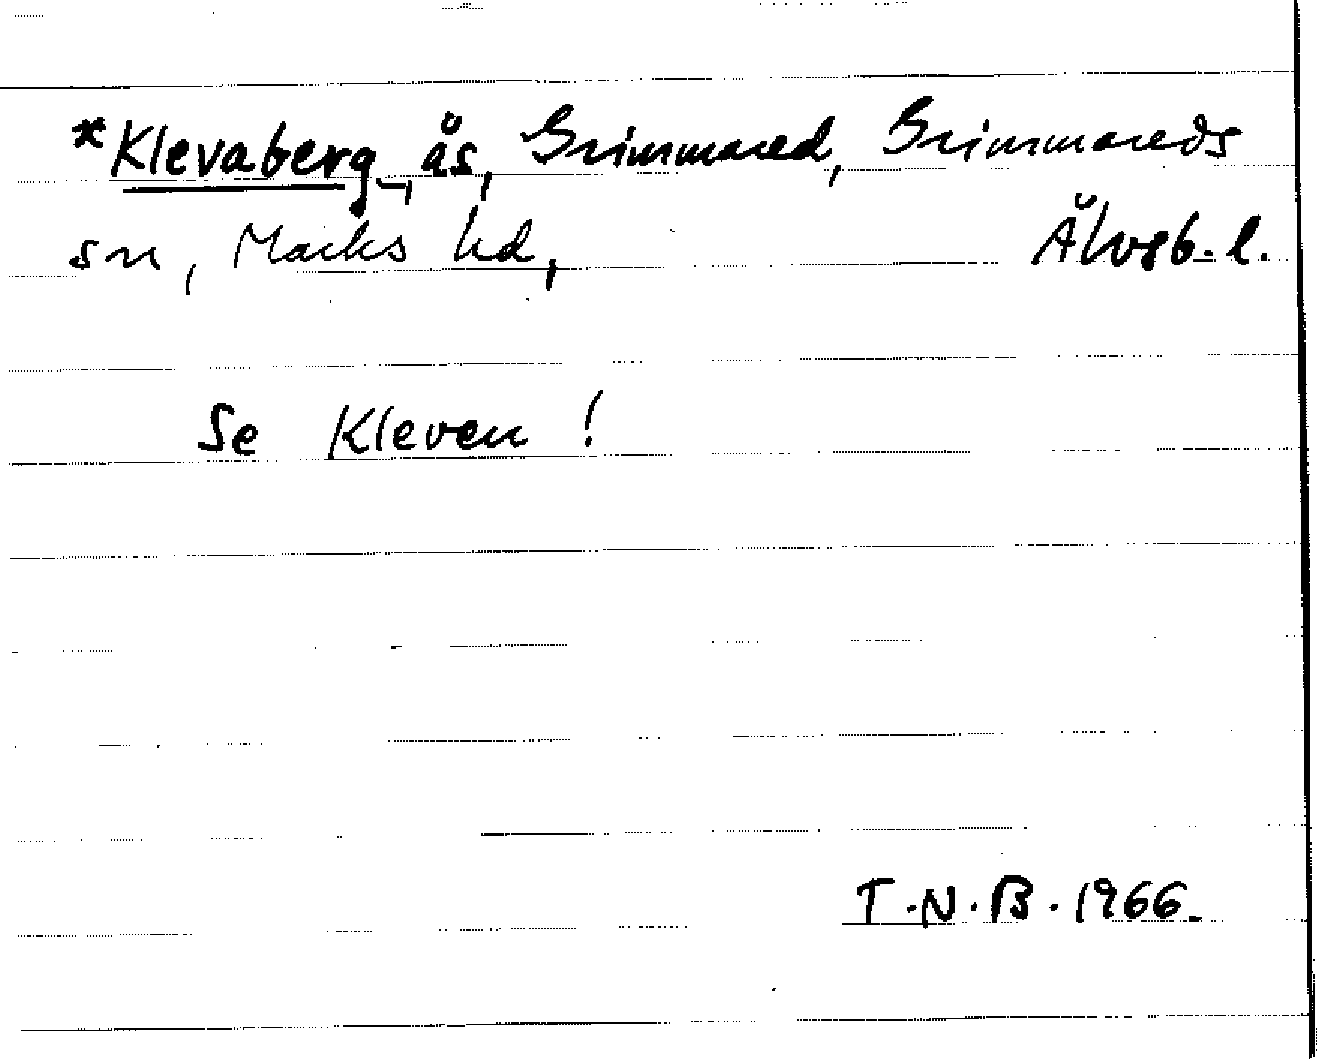 *Klevaberg, ås, Grimmared, Grimmareds
sn, Marks hd, Älvsb. l.
Se Kleven!
T.N.B. 1966.